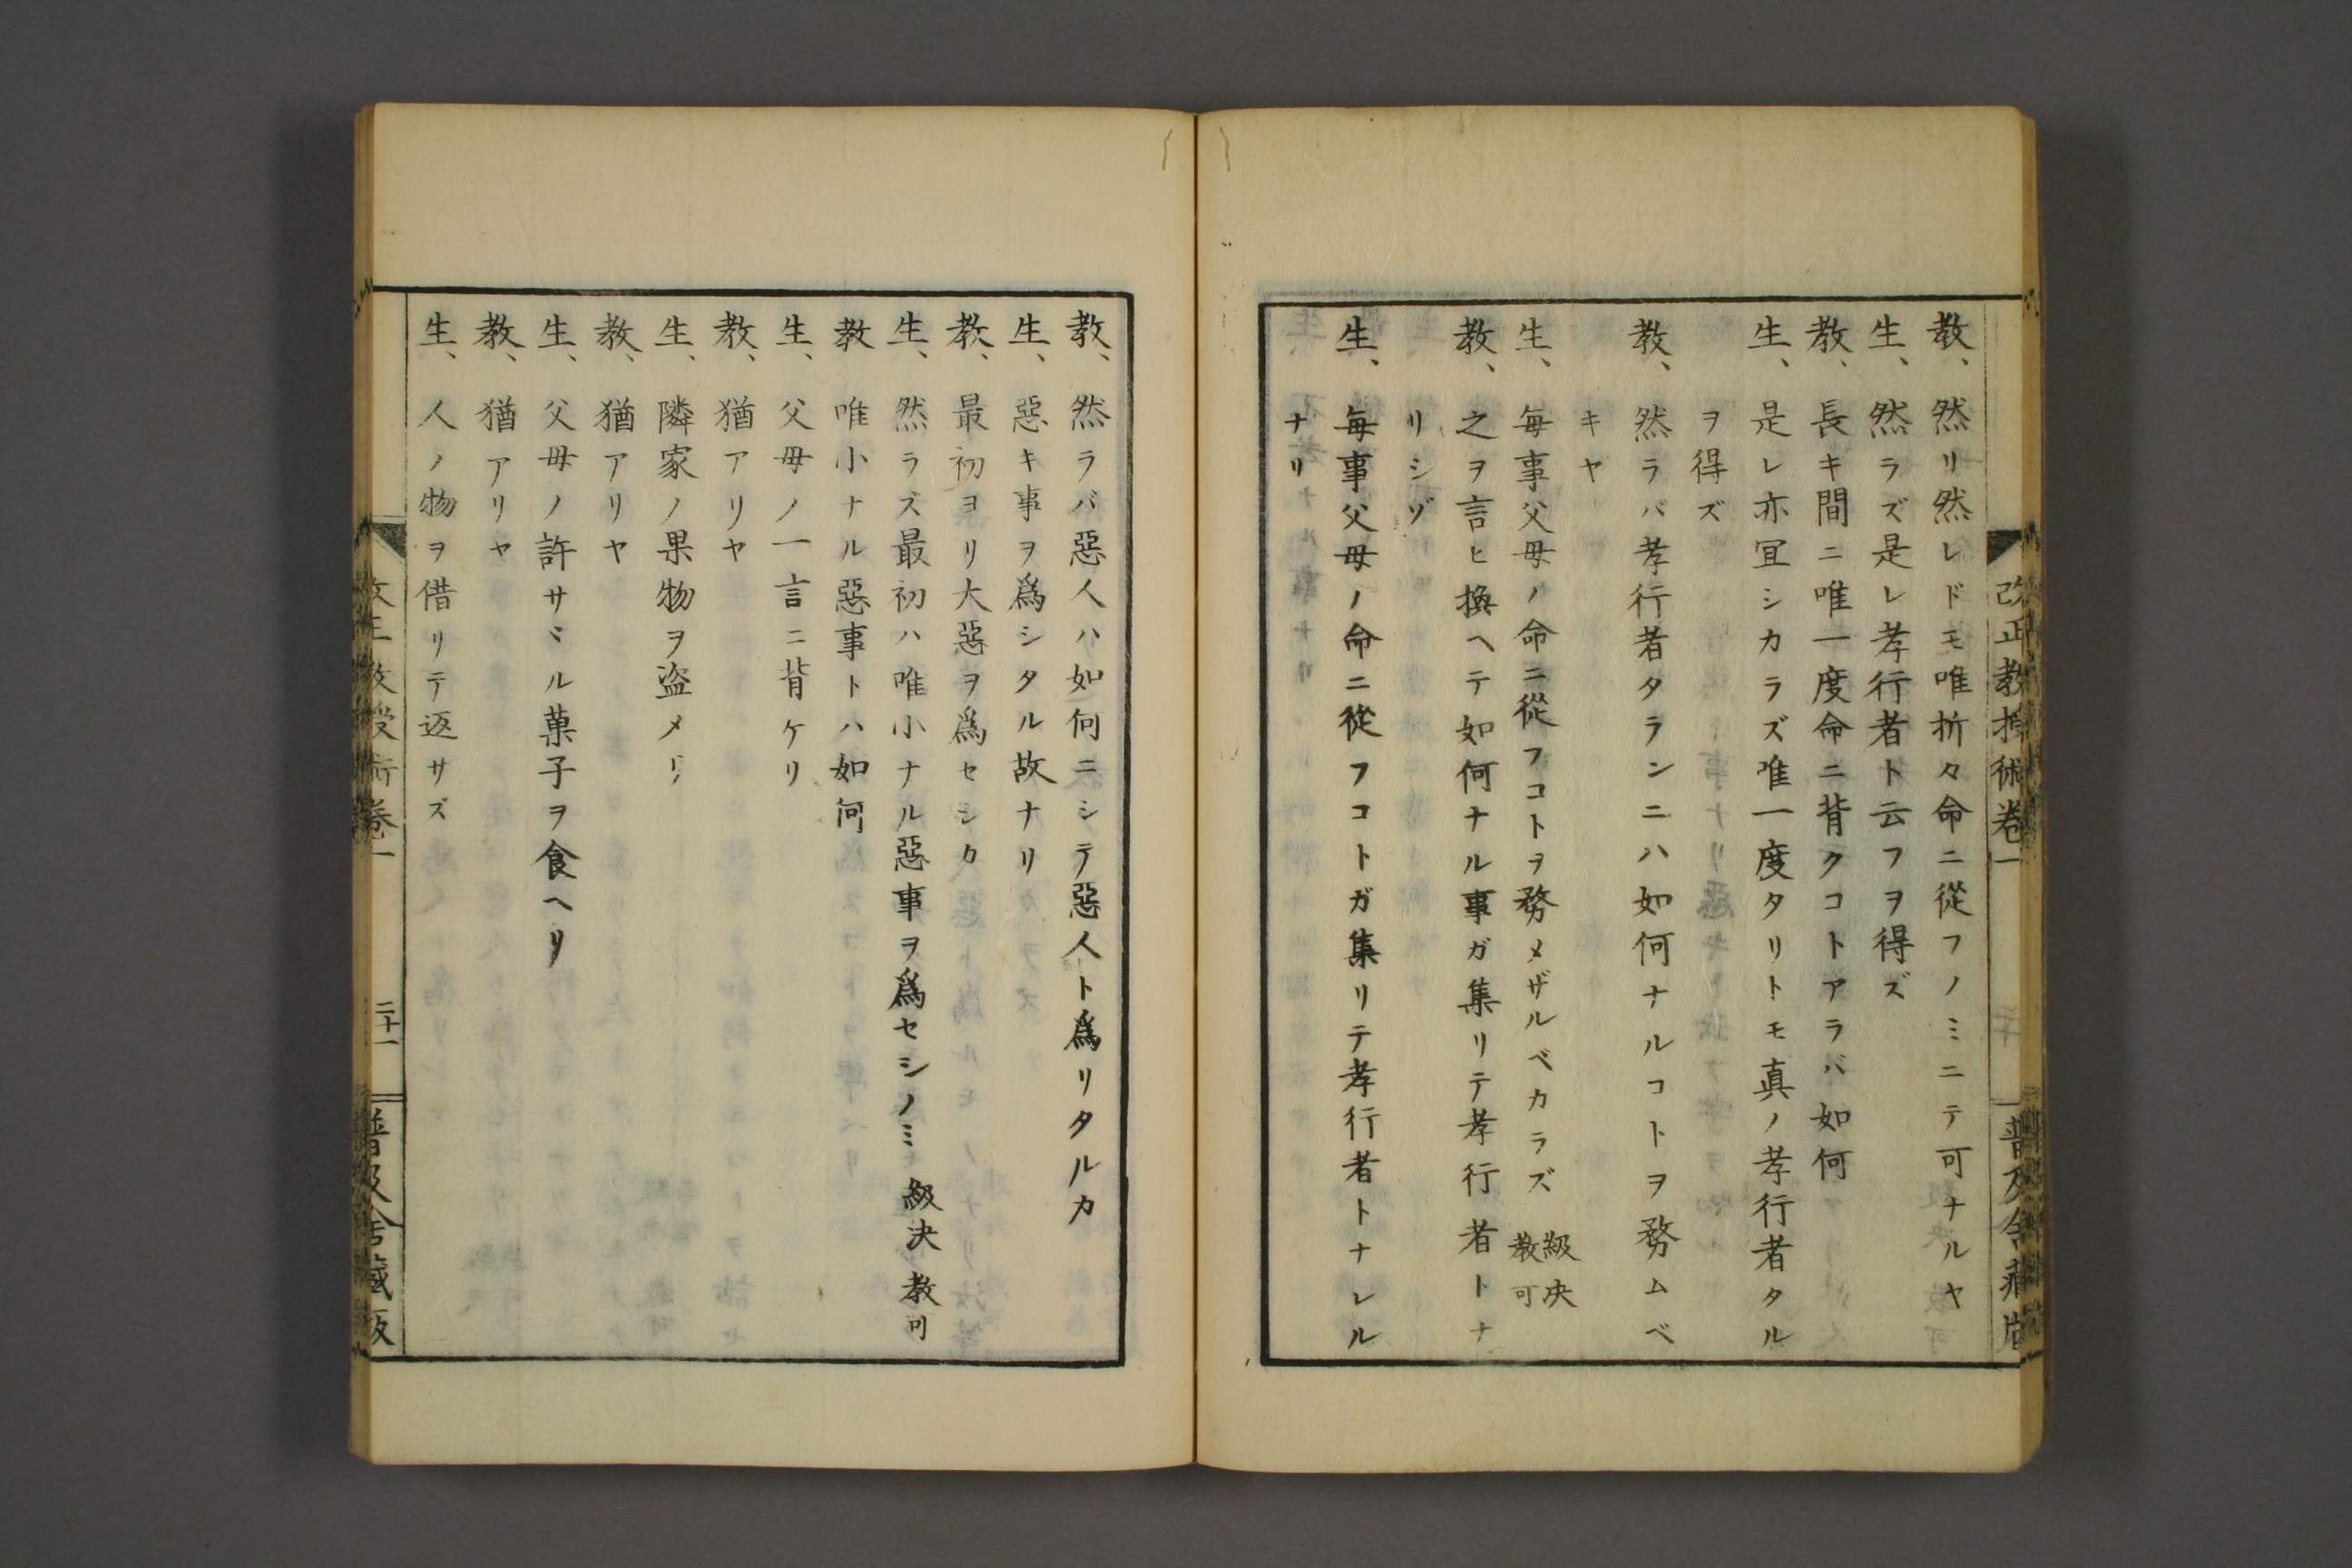 改正教授術卷一
普及舍藏版
教、然リ然レドモ唯折々命ニ從フノミニテ可ナルヤ
生、然ラズ是レ孝行者ト云フヲ得ズ
教、長キ間ニ唯一度命ニ背クコトアラバ如何
生、是レ亦宜シカラズ唯一度タリトモ真ノ孝行者タル
ヲ得ズ
教、然ラバ孝行者タランニハ如何ナルコトヲ務ムベ
キヤ
生、毎事父母ノ命ニ從フコトヲ務メザルベカラズ 級决 教可
教、之ヲ言ヒ換ヘテ如何ナル事ガ集リテ孝行者トナ
リシゾ
生、毎事父母ノ命ニ從フコトガ集リテ孝行者トナレル
ナリ
教、然ラバ惡人ハ如何ニシテ惡人ト爲リタルカ
生、惡キ事ヲ爲シタル故ナリ
教、最初ヨリ大惡ヲ爲セシカ
生、然ラズ最初ハ唯小ナル惡事ヲ爲セシノミ 級决 教可
教、唯小ナル惡事トハ如何
生、父母ノ一言ニ背ケリ
教、猶アリヤ
生、隣家ノ果物ヲ盗メリ
教、猶アリヤ
生、父母ノ許サヾル菓子ヲ食ヘリ
教、猶アリヤ
生、人ノ物ヲ借リテ返サズ
改正教授術卷一
二十一
普及舍藏版